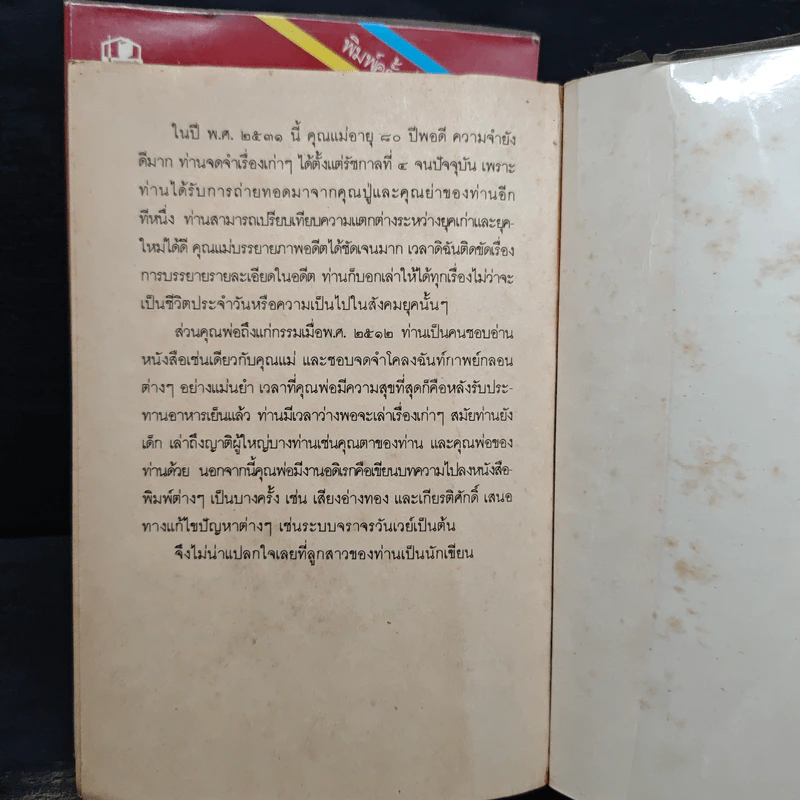 พิมพ์ครั้ง
ในปี พ.ศ. ๒๕๓๑ นี้ คุณแม่อายุ ๘๐ ปีพอดี ความจำยัง
ดีมาก ท่านจดจำเรื่องเก่าๆ ได้ตั้งแต่รัชกาลที่ ๔ จนปัจจุบัน เพราะ
ท่านได้รับการถ่ายทอดมาจากคุณปู่และคุณย่าของท่านอีก
ทีหนึ่ง ท่านสามารถเปรียบเทียบความแตกต่างระหว่างยุคเก่าและยุค-
ใหม่ได้ดี คุณแม่บรรยายภาพอดีตได้ชัดเจนมาก เวลาดิฉันติดขัดเรื่อง
การบรรยายรายละเอียดในอดีต ท่านก็บอกเล่าให้ได้ทุกเรื่องไม่ว่าจะ
เป็นชีวิตประจำวันหรือความเป็นไปในสังคมยุคนั้นๆ
ส่วนคุณพ่อถึงแก่กรรมเมื่อพ.ศ. ๒๕๑๒ ท่านเป็นคนชอบอ่าน
หนังสือเช่นเดียวกับคุณแม่ และชอบจดจำโคลงฉันท์กาพย์กลอน
ต่างๆ อย่างแม่นยำ เวลาที่คุณพ่อมีความสุขที่สุดก็คือหลังรับประ-
ทานอาหารเย็นแล้ว ท่านมีเวลาว่างพอจะเล่าเรื่องเก่าๆ สมัยท่านยัง
เด็ก เล่าถึงญาติผู้ใหญ่บางท่านเช่นคุณตาของท่าน และคุณพ่อของ
ท่านด้วย นอกจากนี้คุณพ่อมีงานอดิเรกคือเขียนบทความไปลงหนังสือ-
พิมพ์ต่างๆ เป็นบางครั้ง เช่น เสียงอ่างทอง และเกียรติศักดิ์ เสนอ
ทางแก้ไขปัญหาต่างๆ เช่นระบบจราจรวันเวย์เป็นต้น
จึงไม่น่าแปลกใจเลยที่ลูกสาวของท่านเป็นนักเขียน